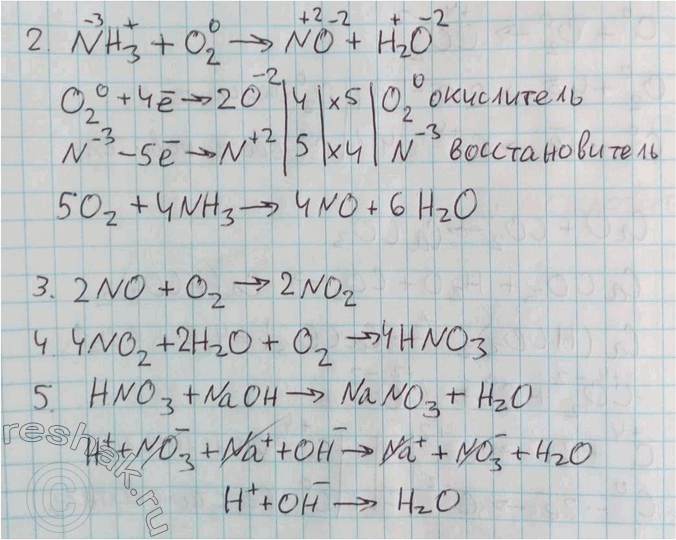 2. N⁻³H₃⁺ + O₂⁰ → N⁺²O⁻² + H₂⁺O⁻²
O₂⁰ + 4ē → 2O⁻² | 4 | ×5 | O₂⁰ окислитель
N⁻³ – 5ē → N⁺² | 5 | ×4 | N⁻³ восстановитель
5O₂ + 4NH₃ → 4NO + 6H₂O
3. 2NO + O₂ → 2NO₂
4. 4NO₂ + 2H₂O + O₂ → 4HNO₃
5. HNO₃ + NaOH → NaNO₃ + H₂O
H⁺ + NO₃⁻ + Na⁺ + OH⁻ → Na⁺ + NO₃⁻ + H₂O
H⁺ + OH⁻ → H₂O
reshak.ru